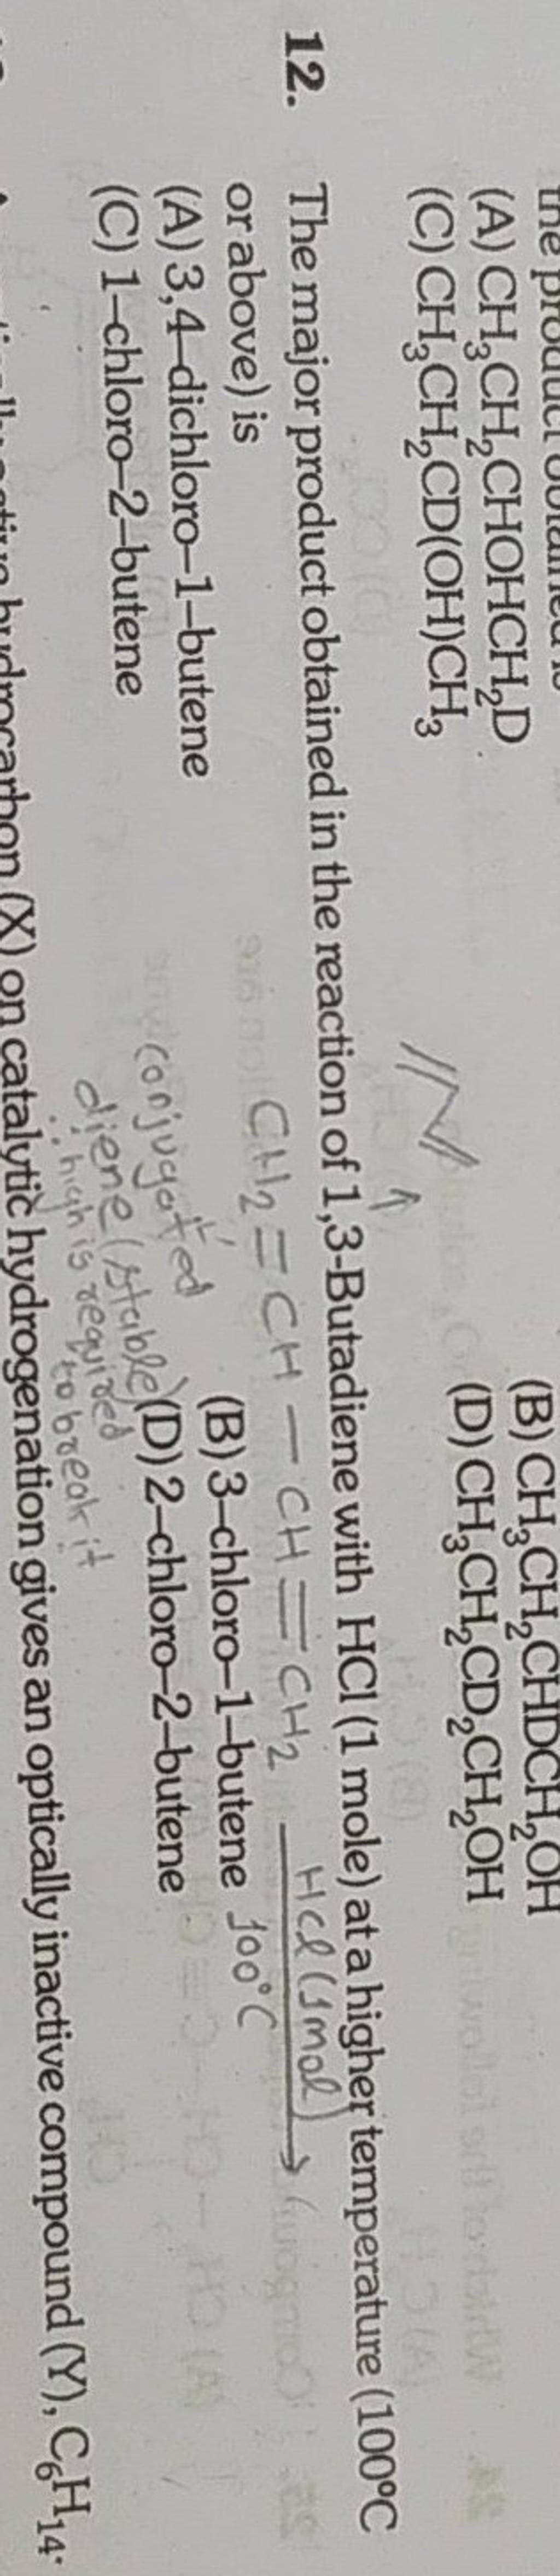 the product obtained is
(A) CH3CH2CHOHCH2D (B) CH3CH2CHDCH2OH
(C) CH3CH2CD(OH)CH3 (D) CH3CH2CD2CH2OH
12. The major product obtained in the reaction of 1,3-Butadiene with HCl (1 mole) at a higher temperature (100°C
or above) is
CH2=CH-CH=CH2 HCl (1mol) → 100°C
(A) 3,4-dichloro-1-butene (B) 3-chloro-1-butene
(C) 1-chloro-2-butene (D) 2-chloro-2-butene
conjugated
diene (stable)
high is required
to break it
hydrocarbon (X) on catalytic hydrogenation gives an optically inactive compound (Y), C6H14.